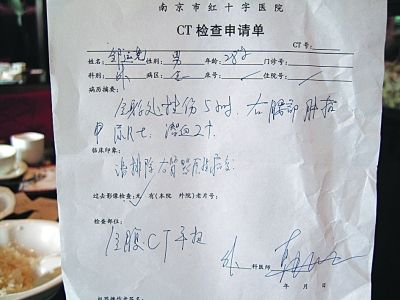 南京市红十字医院
CT 检查申请单
CT 号:
姓名: 性别: 男 年龄: 28岁 门诊号:
科别: 外 病区: 床号: 住院号:
病历摘要:
全身多处外伤5小时. 右腰部肿痛
尿Rt: 潜血2+.
临床印象:
请排除右肾
过去影像检查: 无 有(本院 外院)老片号:
检查部位:
全腹CT平扫
外 科医师
年 月 日